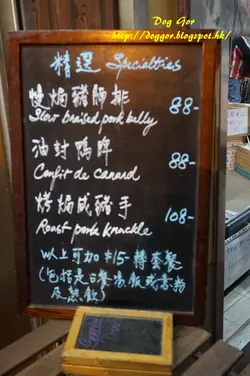 Dog Gor
http://doggor.blogspot.hk/
精選 Specialties
慢焗豬腩排 88-
Slow braised pork belly
油封鴨髀 88-
Confit de Canard
烤焗咸豬手 108-
Roast pork knuckle
以上可加 $15- 轉套餐
(包括是日餐湯, 飯或意粉
及熱飲)